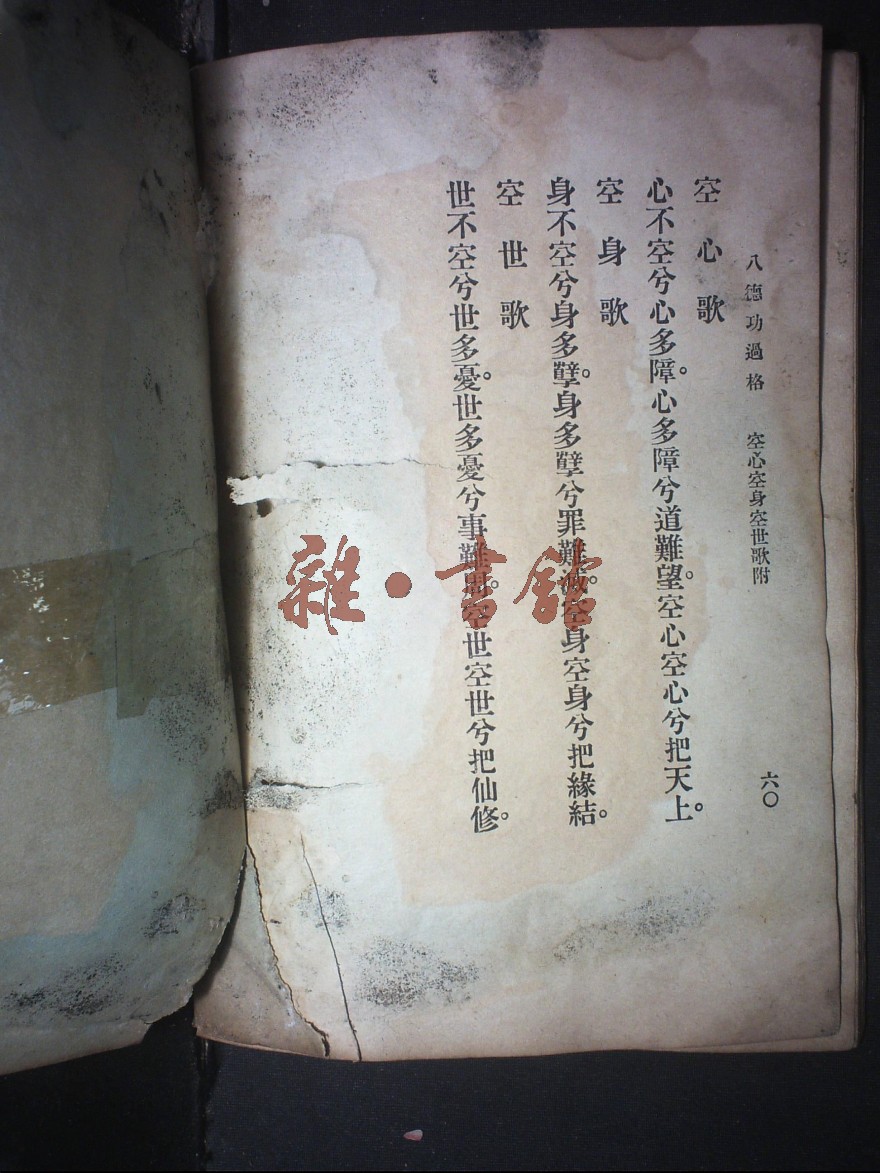 八德功過格 空心空身空世歌附 六〇
空心歌
心不空兮心多障。心多障兮道難望。空心空心兮把天上。
空身歌
身不空兮身多孽。身多孽兮罪難滅。空身空身兮把緣結。
空世歌
世不空兮世多憂。世多憂兮事難。空世空世兮把仙修。
雜·書館